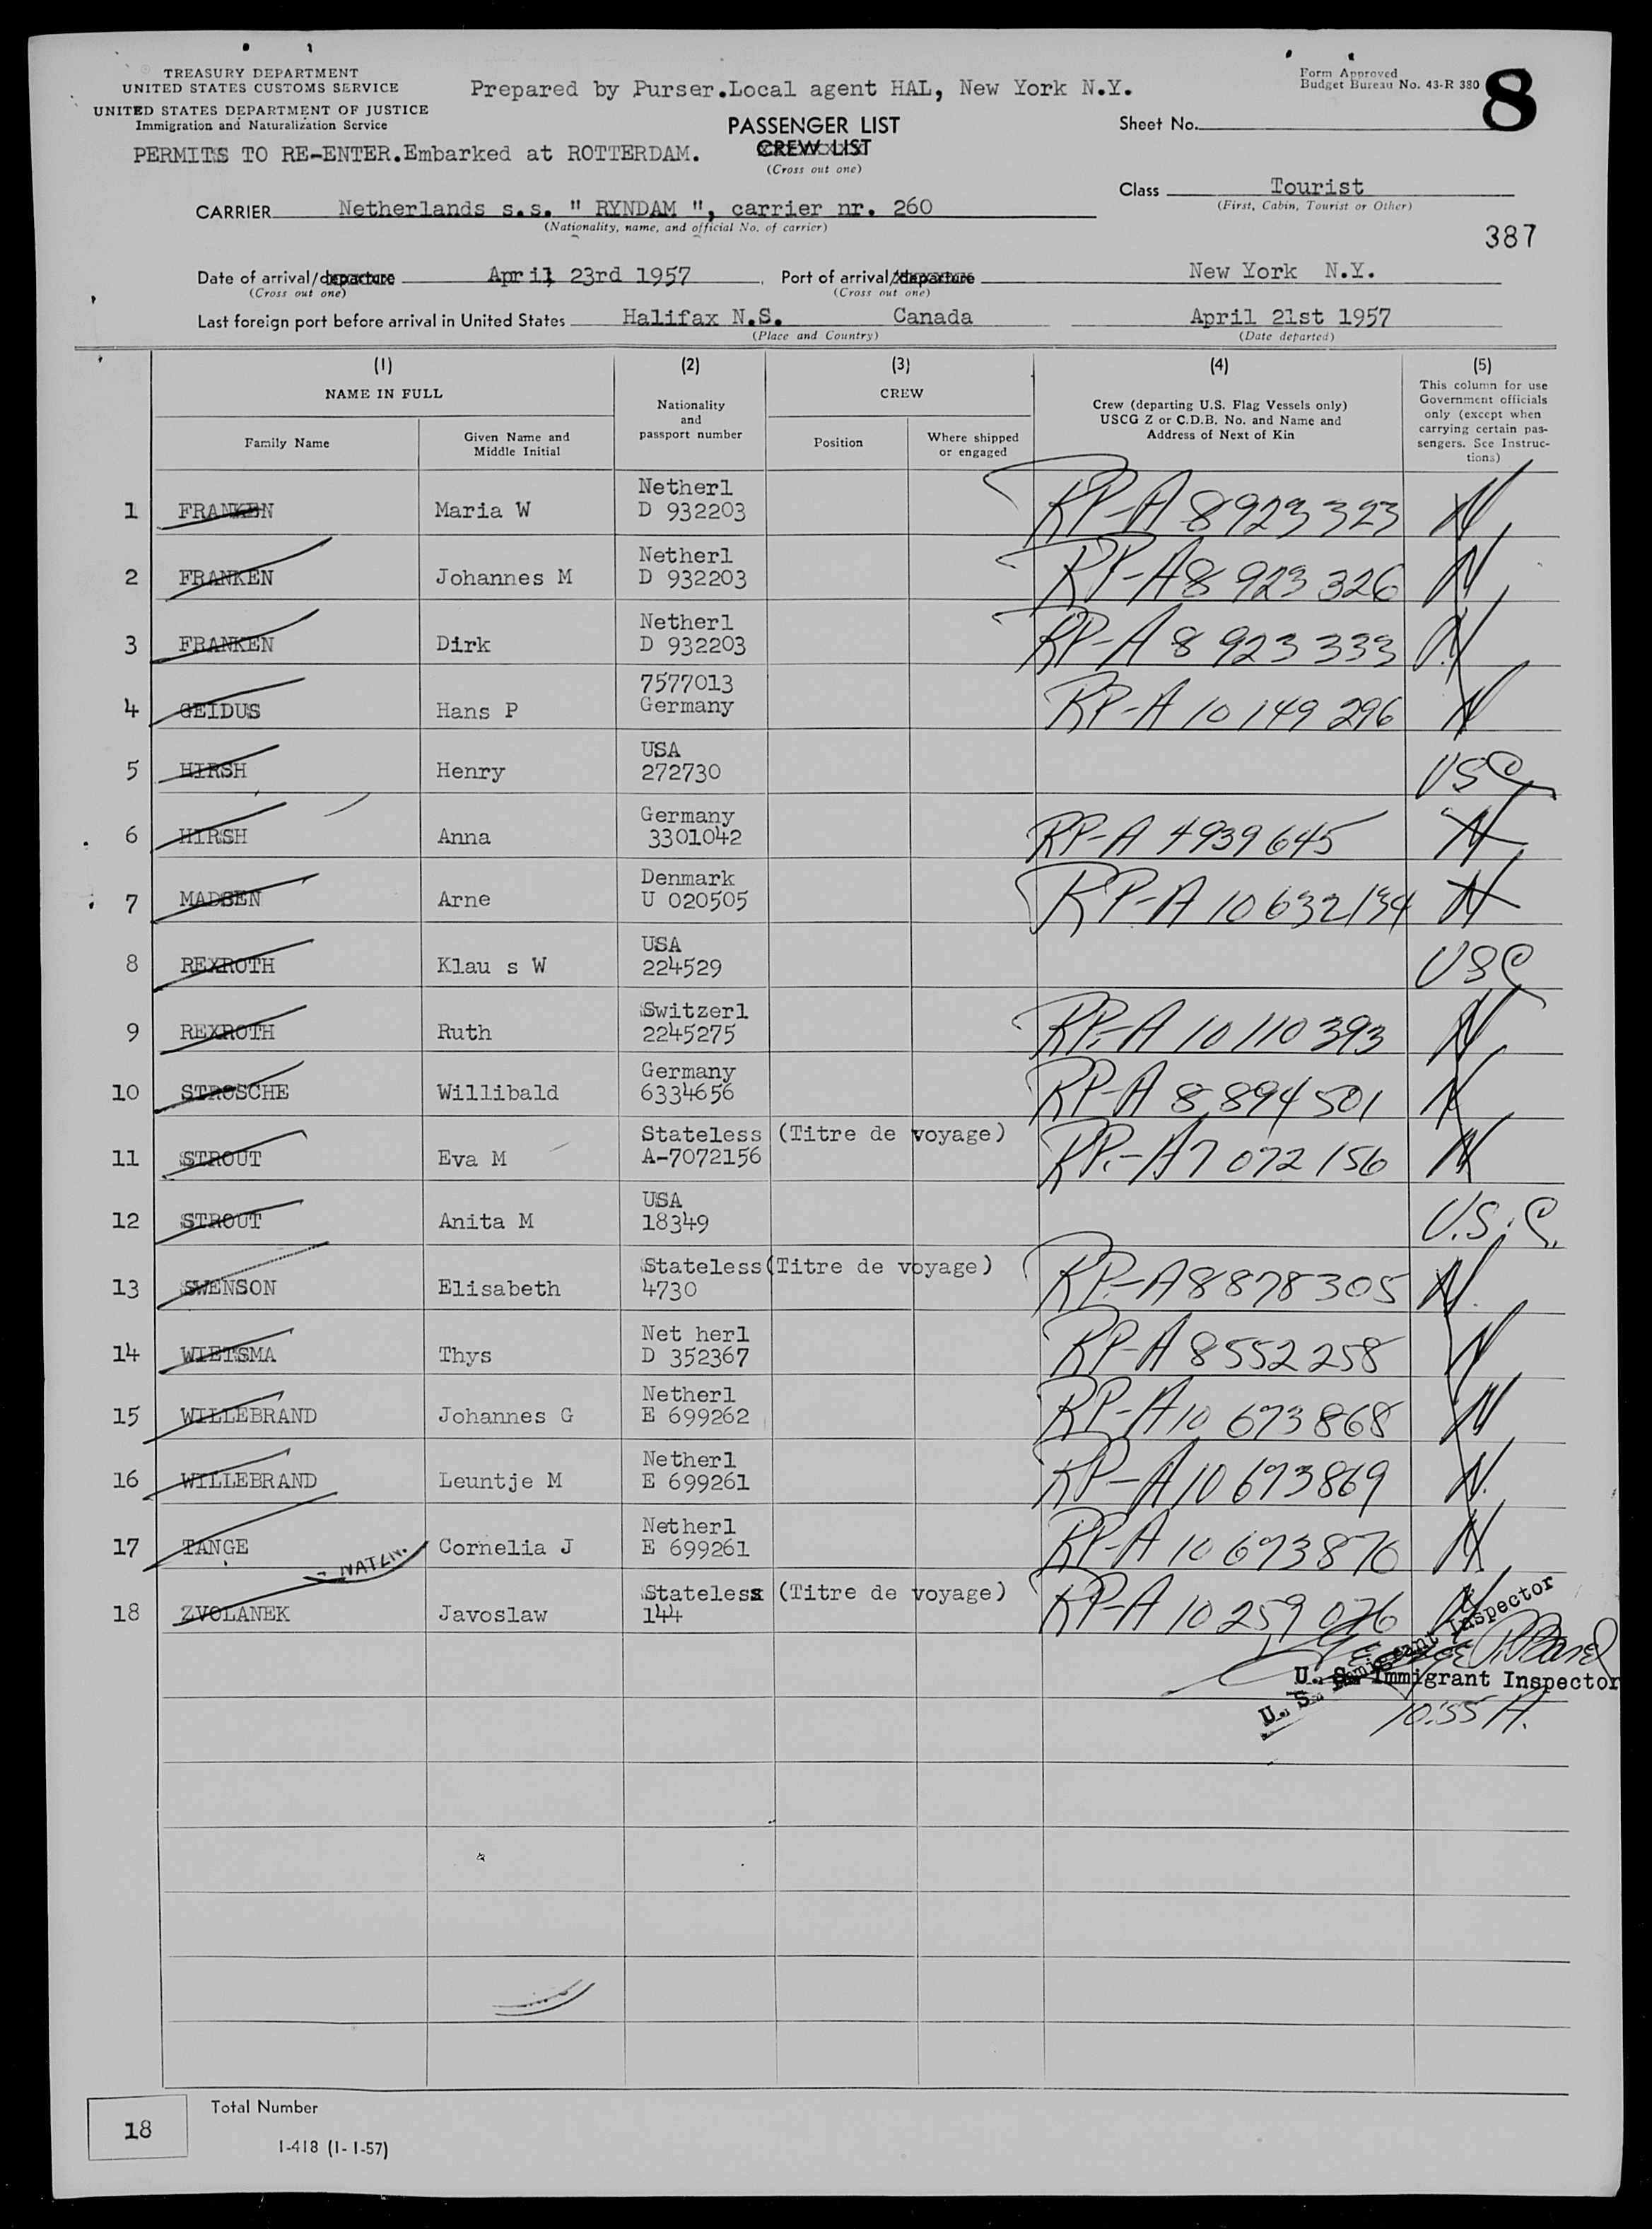 TREASURY DEPARTMENT
UNITED STATES CUSTOMS SERVICE
UNITED STATES DEPARTMENT OF JUSTICE
Immigration and Naturalization Service
Prepared by Purser.Local agent HAL, New York N.Y.
Form Approved
Budget Bureau No. 43-R 380
8
PASSENGER LIST
CREW LIST
(Cross out one)
Sheet No.
PERMITS TO RE-ENTER.Embarked at ROTTERDAM.
Class Tourist
(First, Cabin, Tourist or Other)
CARRIER Netherlands s.s. " RYNDAM ", carrier nr. 260
(Nationality, name, and official No. of carrier)
387
Date of arrival/departure April 23rd 1957 Port of arrival/departure New York N.Y.
(Cross out one) (Cross out one)
Last foreign port before arrival in United States Halifax N.S. Canada April 21st 1957
(Place and Country) (Date departed)
(1) (2) (3) (4) (5)
NAME IN FULL
Family Name
Given Name and
Middle Initial
Nationality
and
passport number
CREW
Position
Where shipped
or engaged
Crew (departing U.S. Flag Vessels only)
USCG Z or C.D.B. No. and Name and
Address of Next of Kin
This column for use
Government officials
only (except when
carrying certain pas-
sengers. See Instruc-
tions)
Netherl
1 FRANKEN Maria W D 932203 RP-A 8923323 N
Netherl
2 FRANKEN Johannes M D 932203 RP-A8 923 326 N
Netherl
3 FRANKEN Dirk D 932203 RP-A 8 923 333 N
7577013
4 GEIDUS Hans P Germany RP-A 10 149 296 N
USA
5 HIRSH Henry 272730 USC
Germany
6 HIRSH Anna 3301042 RP-A 4939645 N
Denmark
7 MADSEN Arne U 020505 RP-A 10632134 N
USA
8 REXROTH Klau s W 224529 USC
Switzerl
9 REXROTH Ruth 2245275 RP-A 10 110 393 N
Germany
10 STROSCHE Willibald 6334656 RP-A 8,894 501 N
Stateless (Titre de voyage)
11 STROUT Eva M A-7072156 RP-A7 072 156 N
USA
12 STROUT Anita M 18349 U.S.C.
Stateless(Titre de voyage)
13 SWENSON Elisabeth 4730 RP-A8878305 N
Net herl
14 WIETSMA Thys D 352367 RP-A 8552258 N
Netherl
15 WILLEBRAND Johannes G E 699262 RP-A10 673868 N
Netherl
16 WILLEBRAND Leuntje M E 699261 RP-A10 673869 N.
Netherl
17 TANGE Cornelia J E 699261 RP-A 10 673870 N
NATZN.
Stateless (Titre de voyage)
18 ZVOLANEK Javoslaw 144 RP-A 10 259 076 N
U. S. Immigrant Inspector
U. S. Immigrant Inspector
10:55 A.
18
Total Number
I-418 (1-1-57)